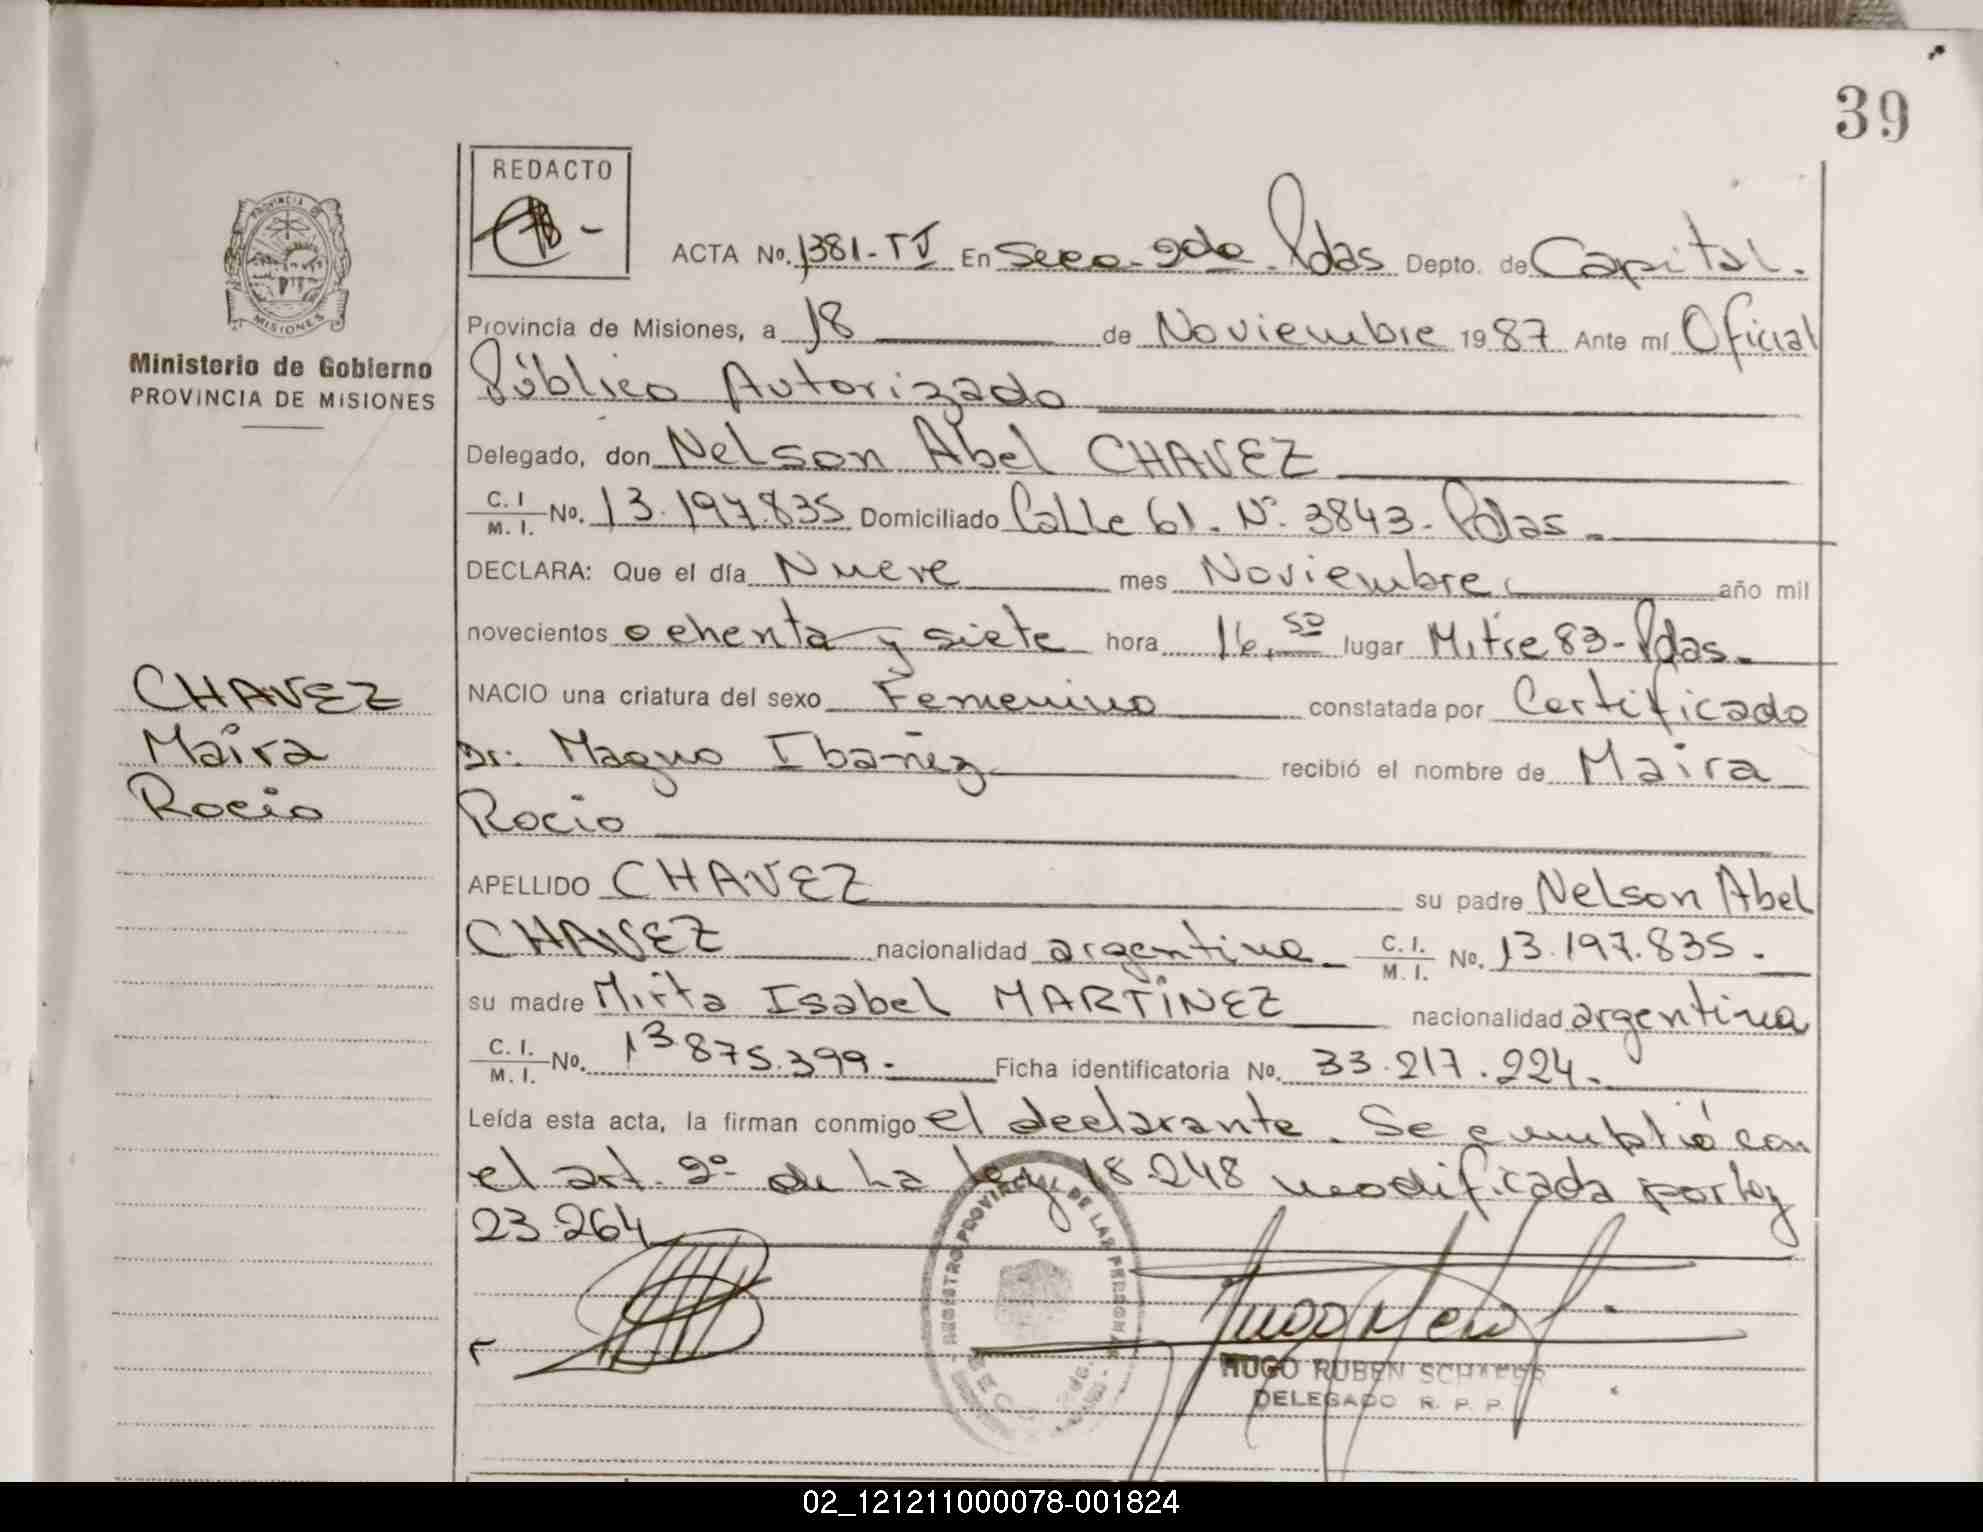 39
REDACTO
ACTA No. 1381-TV En Secc. 2da Pdas Depto. de Capital.
PROVINCIA DE
MISIONES
Provincia de Misiones, a 18 de Noviembre 1987 Ante mí Oficial
Ministerio de Gobierno
PROVINCIA DE MISIONES
Público Autorizado
Delegado, don Nelson Abel CHAVEZ
C. I. / M. I. No. 13.197.835 Domiciliado Calle 61. Nº. 3843- Pdas.
DECLARA: Que el día Nueve mes Noviembre año mil
novecientos ochenta y siete hora 16,50 lugar Mitre 83-Pdas.
CHAVEZ
Maira
Rocio
NACIO una criatura del sexo Femenino constatada por Certificado
Dr. Magno Ibañez recibió el nombre de Maira
Rocio
APELLIDO CHAVEZ su padre Nelson Abel
CHAVEZ nacionalidad argentina C. I. / M. I. No. 13.197.835.
su madre Mirta Isabel MARTÍNEZ nacionalidad argentina
C. I. / M. I. No. 13.875.399.- Ficha identificatoria No. 33.217.224.
Leída esta acta, la firman conmigo el declarante. Se cumplió con
el art. 2º de la ley 18.248 modificada por ley
23.264
REGISTRO PROVINCIAL DE LAS PERSONAS
HUGO RUBEN SCHAFER
DELEGADO R. P. P.
02_121211000078-001824